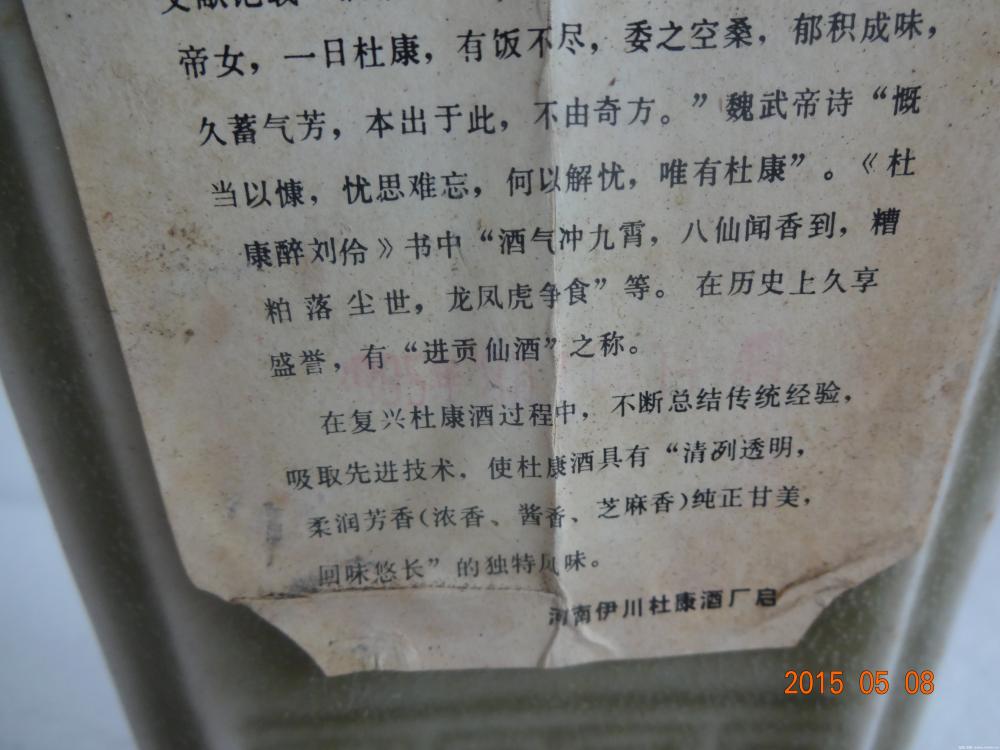 文献记载
帝女，一日杜康，有饭不尽，委之空桑，郁积成味，
久蓄气芳，本出于此，不由奇方。”魏武帝诗“慨
当以慷，忧思难忘，何以解忧，唯有杜康”。《杜
康醉刘伶》书中“酒气冲九霄，八仙闻香到，糟
粕落尘世，龙凤虎争食”等。在历史上久享
盛誉，有“进贡仙酒”之称。
在复兴杜康酒过程中，不断总结传统经验，
吸取先进技术，使杜康酒具有“清冽透明，
柔润芳香(浓香、酱香、芝麻香)纯正甘美，
回味悠长”的独特风味。
河南伊川杜康酒厂启
2015 05 08